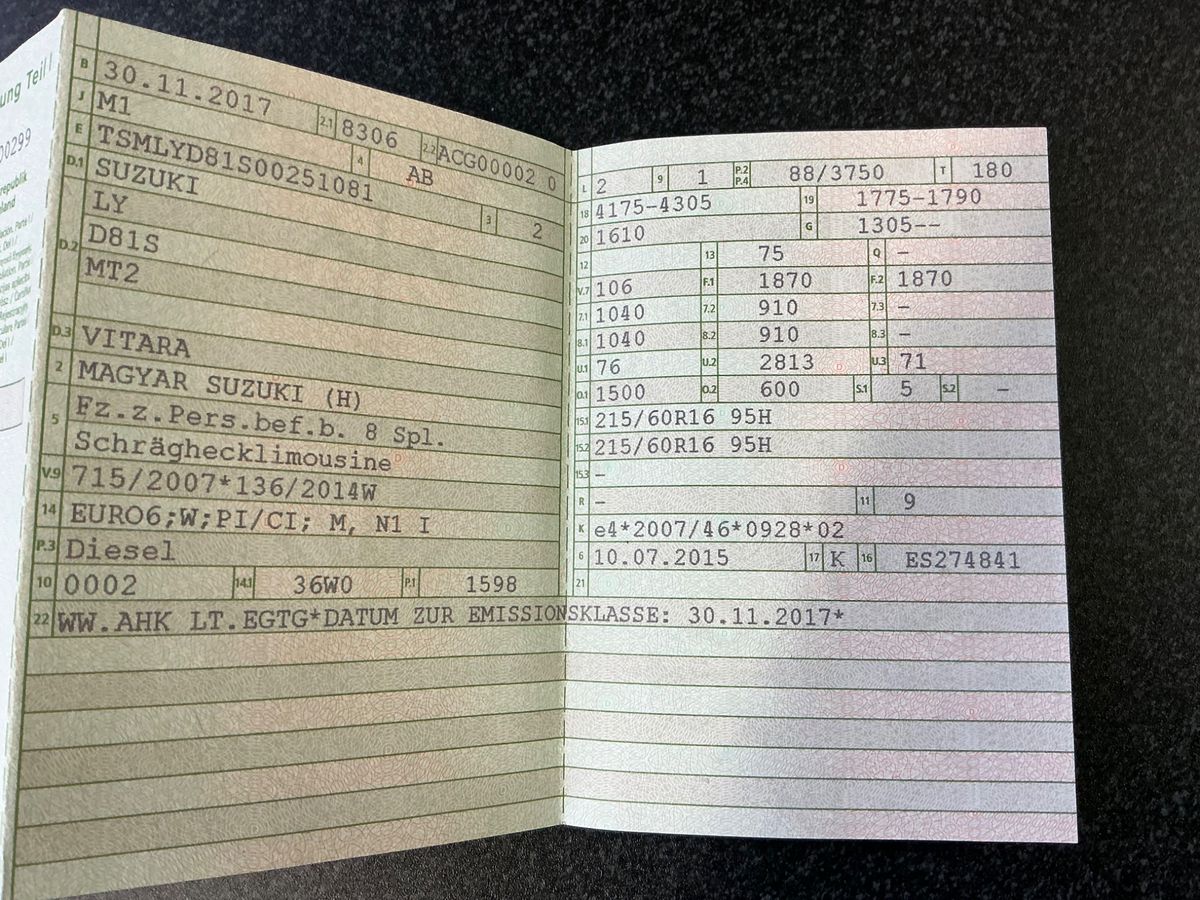 ung Teil I
00299
republik
land
B 30.11.2017 2.1 8306 2.2 ACG00002 0
J M1 4 AB
E TSMLYD81S00251081 3 2
D.1 SUZUKI
D.2 LY
D81S
MT2
D.3 VITARA
2 MAGYAR SUZUKI (H)
5 Fz.z.Pers.bef.b. 8 Spl.
Schräghecklimousine
V.9 715/2007*136/2014W
14 EURO6;W;PI/CI; M, N1 I
P.3 Diesel
10 0002 14.1 36W0 P.1 1598
L 2 9 1 P.2 P.4 88/3750 T 180
18 4175-4305 19 1775-1790
20 1610 G 1305--
12 13 75 Q -
V.7 106 F.1 1870 F.2 1870
7.1 1040 7.2 910 7.3 -
8.1 1040 8.2 910 8.3 -
U.1 76 U.2 2813 U.3 71
O.1 1500 O.2 600 S.1 5 S.2 -
15.1 215/60R16 95H
15.2 215/60R16 95H
15.3 -
R - 11 9
K e4*2007/46*0928*02
6 10.07.2015 17 K 16 ES274841
21
22 WW.AHK LT.EGTG*DATUM ZUR EMISSIONSKLASSE: 30.11.2017*